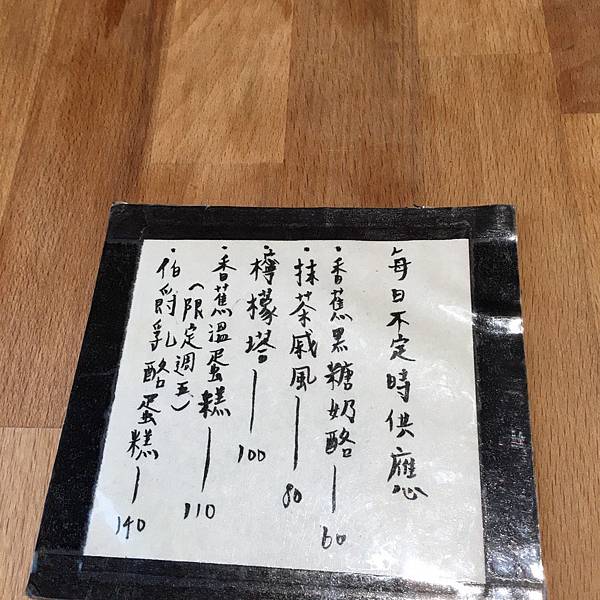 每日不定時供應
·香蕉黑糖奶酪—60
·抹茶戚風—80
·檸檬塔—100
·香蕉溫蛋糕—110
(限定週五)
·伯爵乳酪蛋糕—140